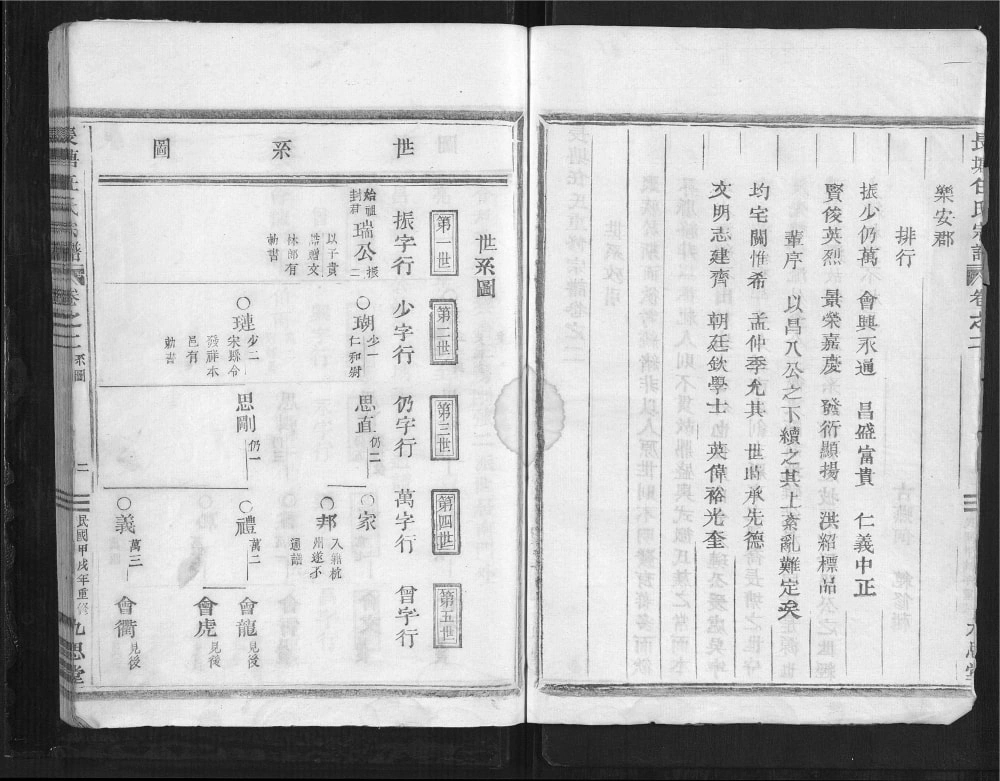 樂安郡
排行
振少仍萬　會興永通　昌盛富貴　仁義中正
賢俊英烈　景榮嘉慶　發衍顯揚　洪紹標品
輩序　以昌八公之下續之其上紊亂難定矣
均宅關惟希　孟仲季允其　世時承先德
文明志建齊　朝廷欽學士　英偉裕光奎
世系圖
世系圖
第一世
振字行
第二世
少字行
第三世
仍字行
第四世
萬字行
第五世
曾字行
始祖
封君
瑞公
振二
以子貴
誥贈文
林郎有
勅書
瑚
少一
仁和尉
思直
仍二
家
邦
入籍杭
州遂不
通譜
璉
少二
宋縣令
發祥本
邑有
勅書
思剛
仍一
禮
萬二
會龍
見後
會虎
見後
義
萬三
會衢
見後
長塘任氏宗譜
卷之二
系圖
二
民國甲戌年重修
九思堂